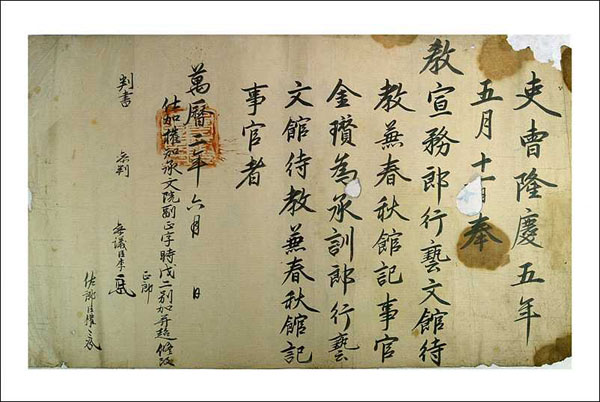 吏曺隆慶五年
五月十一日奉
教宣務郎行藝文館待
教兼春秋館記事官
金瓚為承訓郎行藝
文館待教兼春秋館記
事官者
萬曆二年六月 日
仕加權加承文院副正字時戊二別加并超
判書 叅判 叅議臣李
正郎
佐郎臣